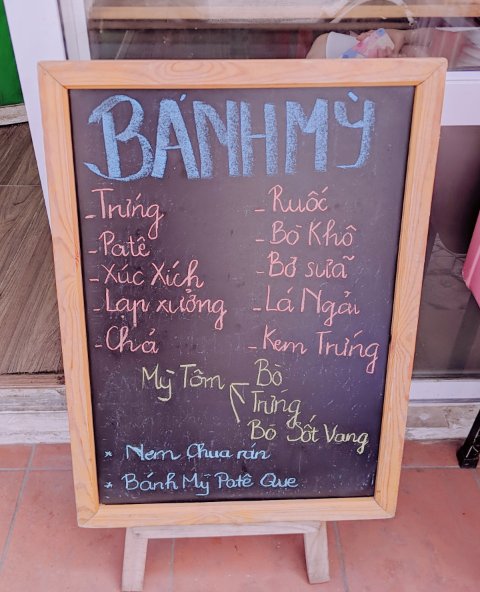 BÁNH MỲ
- Trứng
- Patê
- Xúc Xích
- Lạp xưởng
- Chả
- Ruốc
- Bò Khô
- Bơ sữa
- Lá Ngải
- Kem Trứng
Mỳ Tôm
Bò
Trứng
Bò Sốt Vang
* Nem Chua rán
* Bánh Mỳ Patê Que